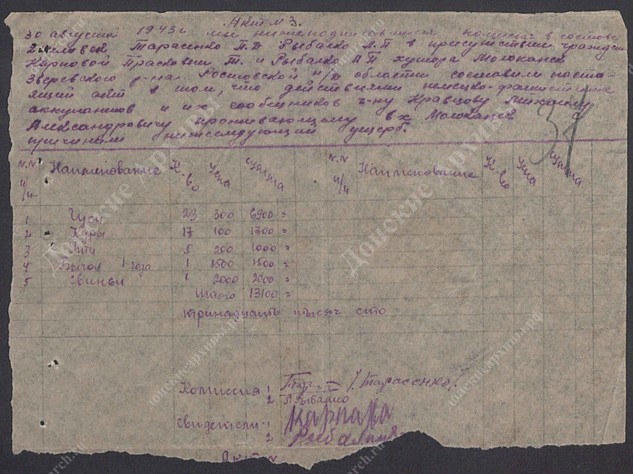 Акт № 3.
30 августа 1943 г. мы нижеподписавшиеся комиссия в составе
2 человек Тарасенко П.Д Рыбалко Л.П в присутствии граждан
Карповой Прасковии Т. и Рыбалко В П хутора Молоканск
Зверевского р-на Ростовской области составили насто-
ящий акт в том, что действиями немецко-фашистских
оккупантов и их сообщников г-ну Кравцову Михаилу
Александровичу проживающему в х Молоканск
причинен нижеследующий ущерб.
34
N.N п/п Наименование К-во Цена Сумма N.N п/п Наименование К-во Цена Сумма
1 Гуси 23 300 6900 =
2 Куры 17 100 1700 =
3 5 200 1000 =
4 1 года 1 1500 1500 =
5 Свиньи 1 2000 2000 =
Итого 13100 =
тринадцать тысяч сто
Комиссия: 1 Тарасенко.
2 Рыбалко
Свидетели: 1 Карпова
2 Рыбалко